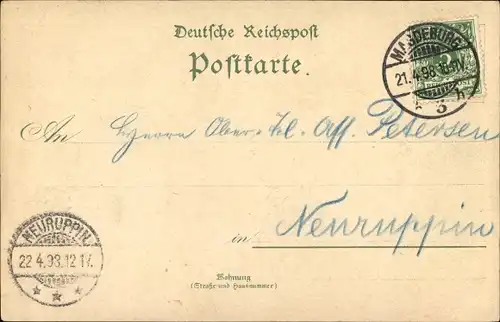 Deutsche Reichspost
Postkarte.
MAGDEBURG
21.4.98.
3
An Herrn Ober-
Petersen
Neuruppin
in
NEURUPPIN
22.4.98.12 1V.
Wohnung
(Straße und Hausnummer)